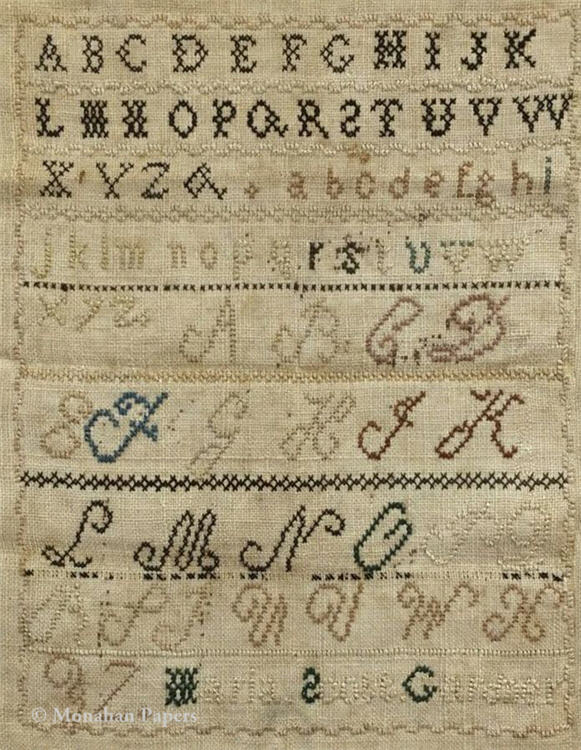 A B C D E F G H I J K
L M N O P Q R S T U V W
X Y Z & a b c d e f g h i
j k l m n o p q r s t u v w
x y z A B C D
E F G H I K
L M N O P Q
R S T U V W X
Y Z Maria S G
© Monahan Papers